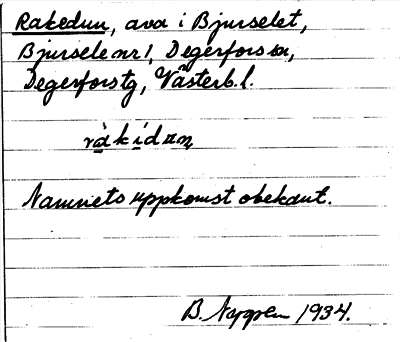 Rakedun, ava i Bjurselet,
Bjursele nr 1, Degerfors sn,
Degerforstg, Västerb. l.
Namnets uppkomst obekant.
B. Nygren 1934.